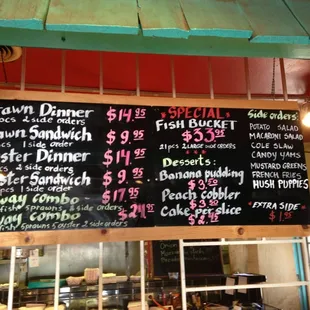 awn Dinner $14.95
pcs 2 side orders
awn Sandwich $9.95
pcs 1 side order
ster Dinner $14.95
2 side orders
ster Sandwich $9.95
1 side order
way combo $17.95
prawns 2 side orders
way combo $24.95
fish 5 prawns 2 side orders
SPECIAL
FISH BUCKET
$33.95
21 pcs 2 LARGE SIDE ORDERS
Desserts:
Banana pudding
$3.50
Peach cobbler
$3.50
Cake per slice
$2.95
Side orders:
POTATO SALAD
MACARONI SALAD
COLE SLAW
CANDY YAMS
MUSTARD GREENS
FRENCH FRIES
HUSH PUPPIES
*EXTRA SIDE*